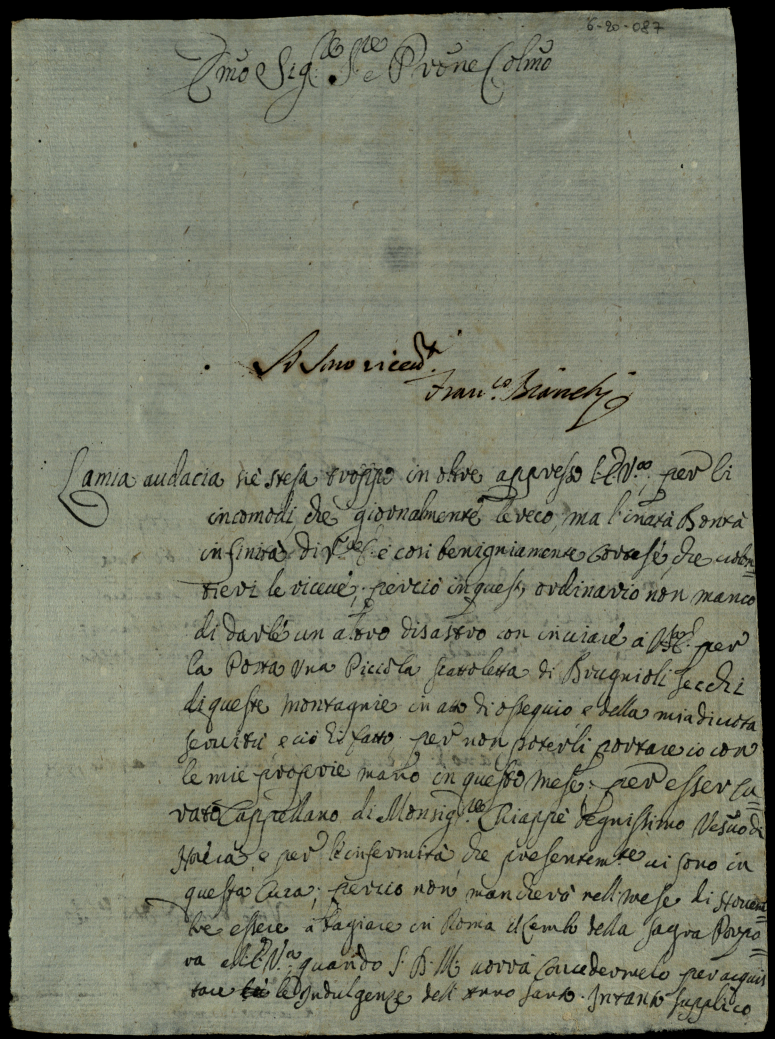 6-20-087
Emo Sig.re Sre e Prone Colmo
Franco Bianchi
La mia audacia s'è stesa troppo in oltre appresso l'E.V.a per li
incomodi che giornalmente le reco, ma l'inata Bontà
infinita di è così benigniamente cortese, che volon=
tieri le riceve; perciò in quest' ordinario non manco
di darle un altro disastro con inviare a per
la Posta Una Piccola scattoletta di Brugnioli secchi
di queste montagnie in atto di ossequio e della mia divota
servitù e ciò hò fatto per non poterli portare io con
le mie proprie mano in questo mese, per esser Cu=
rato Cappellano di Monsig.re Chiappè degnissimo Vescovo di
e per l'infermità che presentemte vi sono in
questa Cura; perciò non mancherò nell'mese di Novem=
bre essere a bagiare in Roma il Lembo della Sagra Porpo=
ra all'E.V.a quando S. D. M. vorrà concedermelo per acquis=
tare le Indulgenze dell'Anno Santo. Intanto supplico